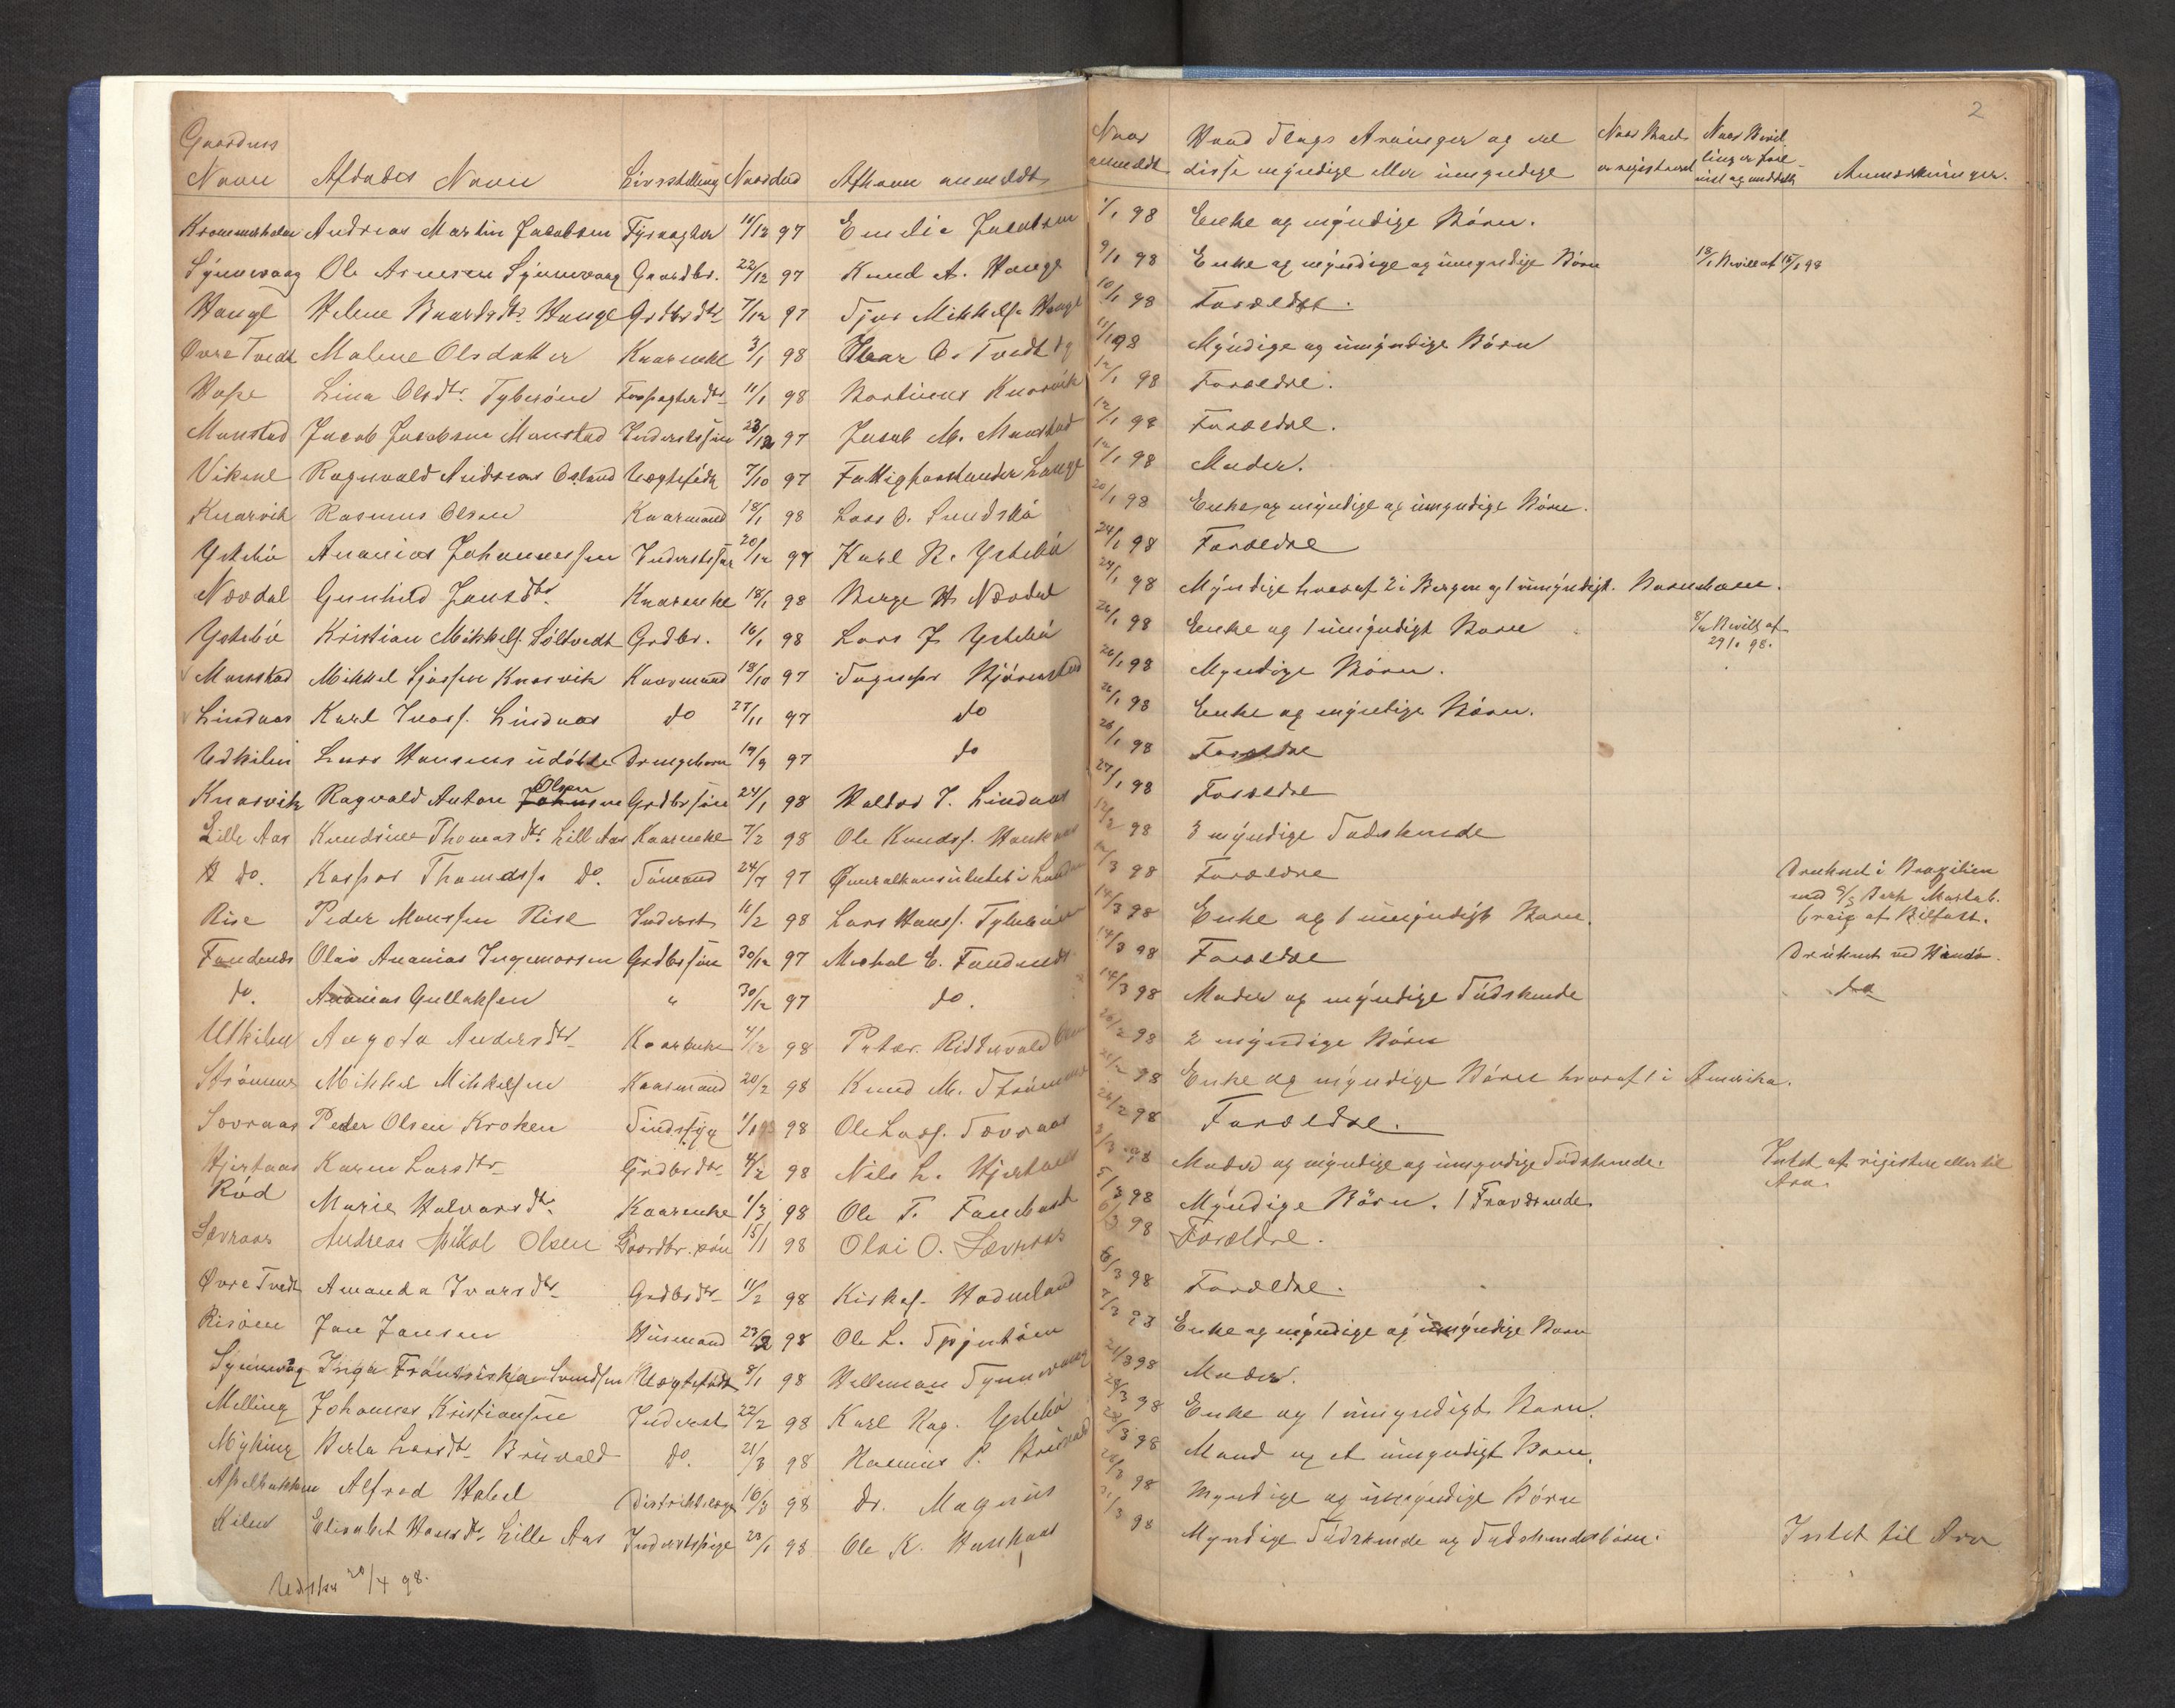 2
Gaardens Navn | Afdødes Navn | Livsstilling | Naar død | Af hvem anmeldt | Naar anmeldt | Hvad Slags Arvinger og om disse myndige eller umyndige | Naar Boet er registreret | Naar Bevilling er | Anmærkninger.
Andreas Martin Jacobsen | Fyrvogter | 11/12 97 | Emelie Jacobsen | 1/1 98 | Enke og myndige Børn.
Synnevaag | Ole Arnesen Synnevaag | Gaardbr. | 22/12 97 | Knud A. Hauge | 9/1 98 | Enke og myndige og umyndige Børn | 18/1 Bevill af 15/1 98
Hauge | Helene Baardsdtr. Hauge | Grdbrdtr | 7/12 97 | Mikkels. Hauge | 10/1 98 | Forældre.
Øvre Tvedt | Malene Olsdatter | Kaarenke | 3/1 98 | Ivar O. Tvedt | 11/1 98 | Myndige og umyndige Børn
Hope | Lina Olsdtr. | 11/1 98 | Knarvik | 12/1 98 | Forældre.
Monstad | Jacob Jacobsen Monstad | Inderstsøn | 23/12 97 | Jacob M. Monstad | 12/1 98 | Forældre.
Vikene | Ragnvald Andreas | Uægtefødt | 7/10 97 | Fattigforstander Lange | 12/1 98 | Moder.
Knarvik | Rasmus Olsen | Kaarmand | 18/1 98 | Lars O. | 20/1 98 | Enke og myndige og umyndige Børn.
Ystebø | Ananias Johannessen | Inderstsøn | 20/12 97 | Karl R. Ystebø | 24/1 98 | Forældre
Nævdal | Gunhild Jensdtr. | Kaarenke | 18/1 98 | Børge H. Nævdal | 24/1 98 | Myndige hvoraf 2 i Bergen og 1 umyndigt Barnebarn.
Ystebø | Kristian Mikkels. Søltvedt | Grdbr. | 16/1 98 | Lars J Ystebø | 26/1 98 | Enke og 1 umyndigt Barn | Bevill. af 29/1 98.
Monstad | Mikkel Knarvik | Kaarmand | 18/10 97 | Bjørnestad | 26/1 98 | Myndige Børn.
Lindaas | Karl Ivars. Lindaas | do | 27/11 97 | do | 26/1 98 | Enke og myndige Børn.
Udkilen | Lars Hansens udøbte Drengebarn | 19/9 97 | do | 26/1 98 | Forældre
Knarvik | Ragvald Anton Olsen | Grdbrsøn | 24/1 98 | Haldor J. Lindaas | 27/1 98 | Forældre
Lille Aas | Knudsine Thomasdtr. Lille Aas | Kaarenke | 7/2 98 | Ole Knuds. | 12/2 98 | 3 myndige Sødskende
do. | Kaspar Thomass. do. | Sømand | 24/7 97 | Generalkonsulatet i London | 3 98 | Forældre | Druknet i Brazilien med af Belfast.
Rise | Peder Monssen Rise | Inderst | 11/2 98 | Lars Hanss. | 14/3 98 | Enke og 1 umyndigt Barn.
Fondenæs | Olav Ananias Ingemorsen | Grdbrsøn | 30/12 97 | E. Fondenæs | 14/3 98 | Forældre | Druknet ved
do. | Ananias Gullaksen | " | 30/12 97 | do. | 14/3 98 | Moder og myndige Sødskende | do
Utkilen | Andersdtr | Kaarenke | 4/2 98 | 26/2 98 | 2 myndige Børn
Strømmen | Mikkel Mikkelsen | Kaarmand | 20/2 98 | Knud M. Strømmen | 98 | Enke og myndige Børn hvoraf 1 i Amerika.
Sævraas | Peder Olsen Kroken | Sindssyg | 98 | Ole Lass. Sævraas | 26/2 98 | Forældre.
Hjertaas | Karen Larsdtr | Grdbrdtr | 4/2 98 | Nils L. Hjertaas | 98 | Moder og myndige og umyndige Sødskende. | Intet at registere eller til Arv.
Rød | Marie Halvorsdtr. | Kaarenke | 1/3 98 | Ole T. | 5/3 98 | Myndige Börn. 1 Fraværende
Sævraas | Andreas Mikal Olsen | Gaardbr. søn | 15/1 98 | Olai O. Sævraas | 98 | Forældre.
Øvre Tvedt | Amanda Ivarsdtr | Grdbrdtr | 11/2 98 | Kirkes. | 6/3 98 | Forældre.
Jan Jansen | Husmand | 23/2 98 | Ole L. | 7/3 93 | Enke og myndige og umyndige Børn
Synnevåg | Inga Fransiska Svendsen | Uægtefødt | 8/1 98 | Synnevaag | 21/3 98 | Moder.
Melling | Johannes Kristiansen | Inderst | 22/2 98 | Karl Rag. Ystebø | 28/3 98 | Enke og 1 umyndigt Barn.
Myking | Berta Larsdtr Bruvold | do. | 21/3 98 | Rasmus P. | 3 98 | Mand og et umyndigt Barn.
Alfred Habel | Distriktslæge | 98 | Dr. Magnus | 3 98 | Myndige og umyndige Börn
Kilen | Elisabet Hansdtr. Lille Aas | Inderstpige | 23/1 98 | Ole K. | 3 98 | Myndige Sødskende og Sødskendebørn. | Intet til Arv
20/4 98.